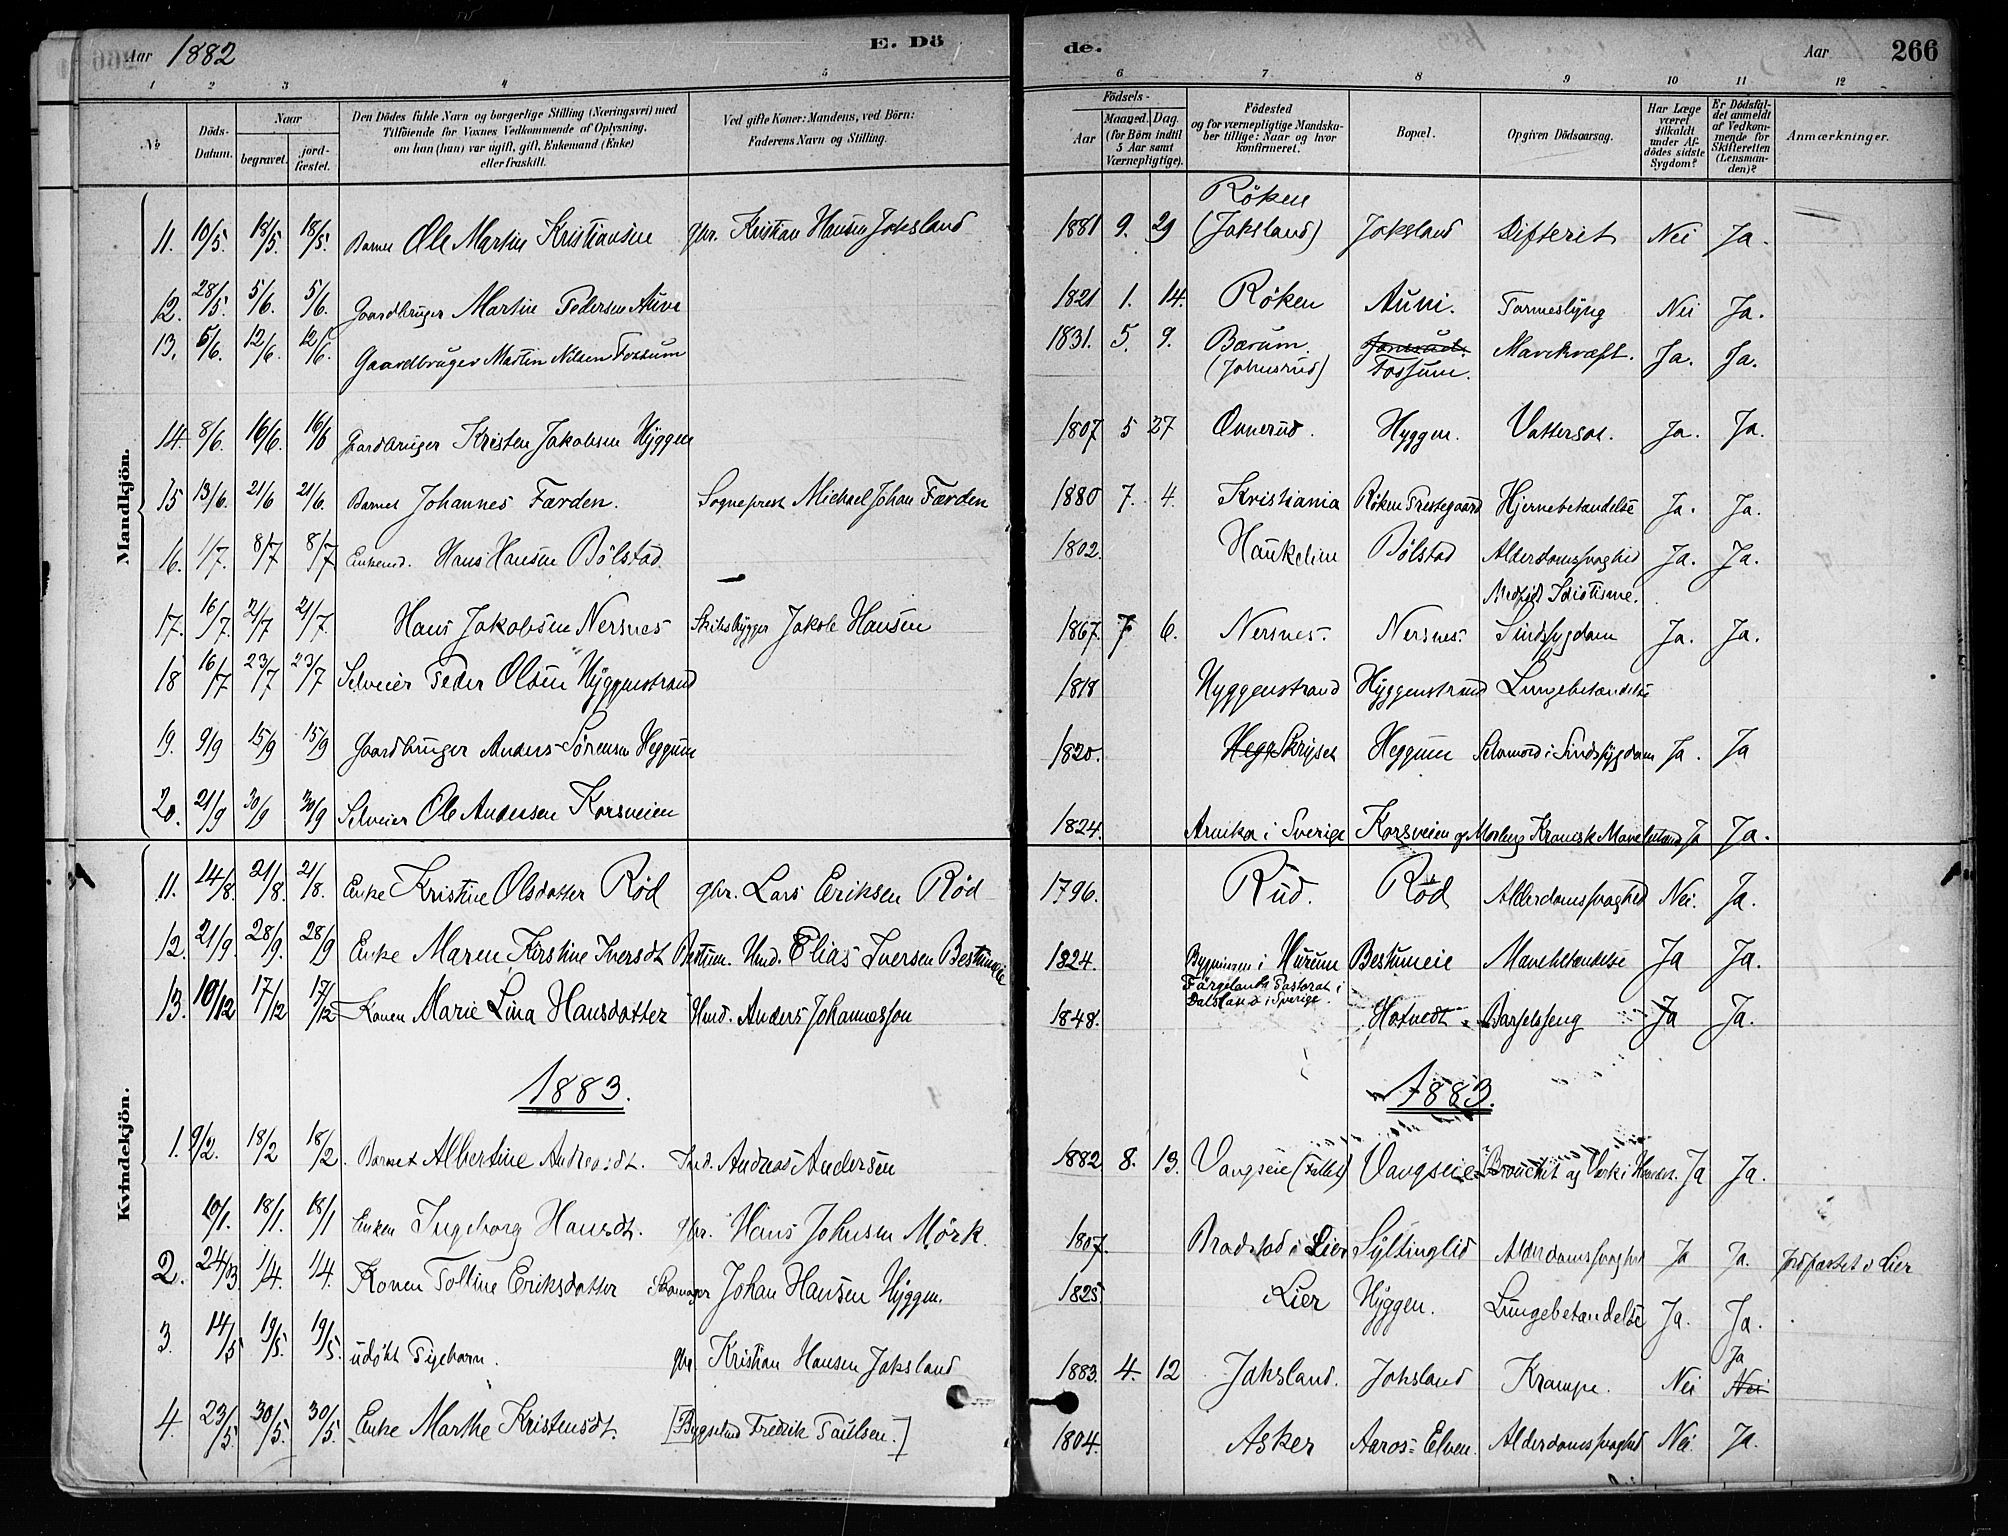 Aar 1882 E. Dö de. Aar 266
1 2 3 4 5 6 7 8 9 10 11 12
No
Döds-Datum.
Naar
begravet.
jord-fæstet.
Den Dödes fulde Navn og borgerlige Stilling (Næringsvei) med
Tilföiende for Voxnes Vedkommende af Oplysning,
om han (hun) var ugift, gift, Enkemand (Enke)
eller fraskilt.
Ved gifte Koner: Mandens, ved Börn:
Faderens Navn og Stilling.
Födsels-
Aar
Maaned. Dag.
(for Börn indtil
5 Aar samt
Værnepligtige).
Födested
og for værnepligtige Mandska-
ber tillige: Naar og hvor
konfirmeret.
Bopæl.
Opgiven Dödsaarsag.
Har Læge
været
tilkaldt
under Af-
dödes sidste
Sygdom?
Er Dödsfal-
det anmeldt
af Vedkom-
mende for
Skifteretten
(Lensman-
den)?
Anmærkninger.
Mandkjön.
11. 10/5. 18/5. 18/5. Barnet Ole Martin Kristiansen gbr. Kristian Hansen Jaksland 1881 9. 29 Röken (Jaksland) Jaksland Difterit Nei Ja.
12. 28/5 5/6. 5/6. Gaardbruger Martin Pedersen Auve 1821 1. 14. Röken Auvi. Tarmeslyng Nei Ja.
13. 5/6. 12/6. 12/6. Gaardbruger Martin Nilsen Fossum 1831. 5. 9. Bærum. (Johnsrud) Fossum. Mavekræft. Ja. Ja.
14. 8/6. 16/6. 16/6 Gaardbruger Kristen Jakobsen Hyggen 1807 5 27 Ovnerud. Hyggen. Vattersot. Ja. Ja.
15 13/6. 21/6 21/6. Barnet Johannes Færden. Sogneprest Michael Johan Færden 1880 7. 4. Kristiania Röken Prestegaard Hjernebetændelse Ja. Ja.
16. 1/7. 8/7 8/7 Enkemd. Hans Hansen Bölstad 1802. Haukelien Bölstad Alderdomssvaghed Ja. Ja.
17. 16/7. 21/7 21/7. Hans Jakobsen Nersnes Skibsbygger Jakob Hansen 1867. 7 6. Nersnes. Nersnes. Medfødt Idiotisme. Sindssygdom Ja. Ja.
18 16/7 23/7 23/7 Selveier Peder Olsen Hyggenstrand 1818 Hyggenstrand Hyggenstrand Lungebetændelse
19. 9/9 15/9 15/9 Gaardbruger Anders Sörensen Heggum 1820. Skryset Heggum Selvmord i Sindssygdom Ja. Ja
20. 21/9 30/9 30/9 Selveier Ole Andersen Korsveien 1824. Arvika i Sverige Korsveien Kronisk Mavebetænd. Ja Ja.
Kvindekjön.
11. 14/8 21/8. 21/8. Enke Kristine Olsdatter Röd gbr. Lars Eriksen Röd 1796. Rud. Röd Alderdomssvaghed Nei. Ja.
12. 21/9. 28/9. 28/9 Enke Maren Kirstine Iversdt Bestum. Hmd. Elias Iversen Bestumeie 1824. Bygningen i Hurum Bestumeie Mavebetændelse Ja Ja.
13. 10/12 17/12 17/12 Konen Marie Lina Hansdatter Hmd. Anders Johannesson 1848. Färgelanda Pastorat i Dalsland i Sverige. Hotvedt Barselseng Ja Ja.
1883. 1883.
1. 9/2. 18/2 18/2. Barnet Albertine Andreasdt. Ind. Andreas Andersen 1882 8. 13. Vangseie (Fallet) Vangseie Bronchit og Værk i Hovedet. Ja Ja.
10/1. 18/1. 18/1 Enken Ingeborg Hansdt. gbr. Hans Johnsen Mörk. 1807. Bradstad i Lier Syltinglid Alderdomssvaghed Ja Ja. Jordfæstet i Lier
2. 24/03. 1/4. 1/4. Konen Polline Eriksdatter Skomager Johan Hansen Hyggen. 1825 Lier Hyggen. Lungebetændelse Ja. Ja.
3. 14/5 19/5. 19/5. udöbt Pigebarn. gbr. Kristian Hansen Jaksland 1883. 4. 12 Jaksland. Jaksland Krampe. Nei Ja Nei
4. 23/5. 30/5. 30/5. Enke Marthe Kristensdt. [Bygselmd Fredrik Paulsen.] 1804. Asker Aaros-Elven. Alderdomssvaghed Nei Ja.